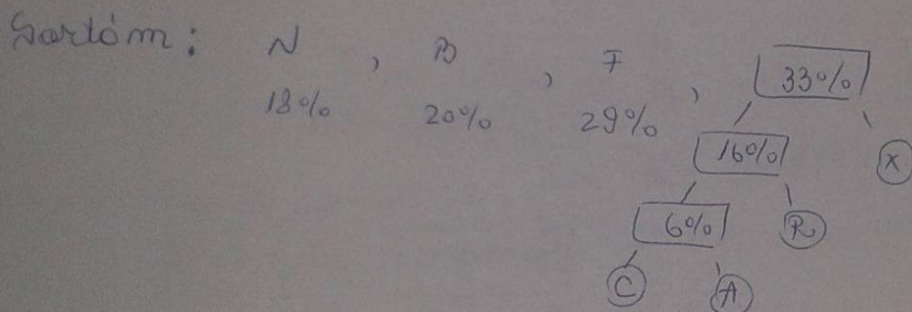 Sortóm:
N , B , F , 33%
18% 20% 29%
16% X
6% R
C A